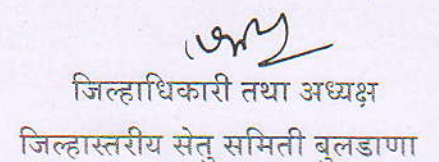 जिल्हाधिकारी तथा अध्यक्ष
जिल्हास्तरीय सेतु समिती बुलडाणा